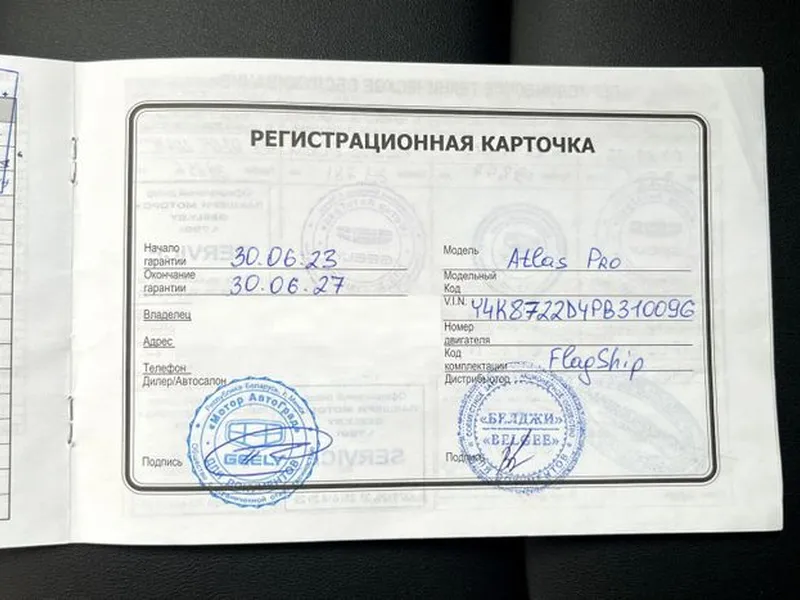 РЕГИСТРАЦИОННАЯ КАРТОЧКА
Начало гарантии 30.06.23
Окончание гарантии 30.06.27
Владелец
Адрес
Телефон
Дилер/Автосалон
Республика Беларусь, г. Минск
«Мотор АвтоГрад»
GEELY
ДЛЯ ДОКУМЕНТОВ
Подпись
Модель Atlas Pro
Модельный Код
V.I.N. Y4K8722D4PB31009G
Номер двигателя
Код комплектации FlagShip
Дистрибьютор
«БЕЛДЖИ»
«BELGEE»
ДЛЯ ДОКУМЕНТОВ
Подпись